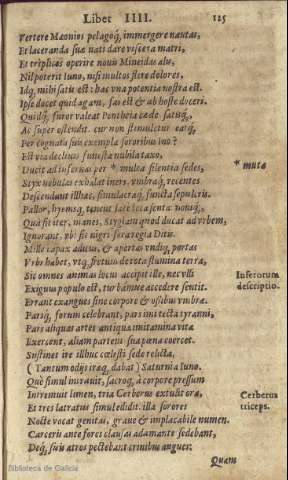 Liber IIII. 125
Vertere Mæonios pelagoq́; immergere nautas,
Et laceranda suæ nati dare viscera matri,
Et triplicas operire nouis Mineidas alis,
Nil poterit Iuno, nisi inultos flere dolores,
Idq́; mihi satis est: hæc vna potentia nostra est.
Ipse docet quid agam, fas est & ab hoste doceri.
Quidq́; furor valeat Pentheia cæde satisq́;,
Ac super ostendit. cur non stimuletur eatq́;,
Per cognata suis exempla sororibus Ino?
Est via decliuis funesta nubila taxo,
Ducit ad infernas per * multa silentia sedes,
* muta
Styx nebulas exhalat iners, vmbræq́; recentes
Descendunt illhac, simulacraq́; functa sepulcris.
Pallor, hyemsq́; tenent late loca senta: nouiq́;,
Qua sit iter, manes, Stygiam quod ducat ad vrbem,
Ignorant, vbi sit nigri fera regia Ditis.
Mille capax aditus, & apertas vndiq; portas
Vrbs habet, vtq́; fretum de tota flumina terra,
Sic omnes animas locus accipit ille, nec vlli
Inferorum
Exiguus populo est, turbámue accedere sentit.
descriptio.
Errant exangues sine corpore & ossibus vmbræ.
Parsq́; forum celebrant, pars imi tecta tyranni,
Pars aliquas artes antiquæ imitamina vitæ
Exercent, aliam partem sua pœna coercet.
Sustinet ire illhuc cœlesti sede relicta,
(Tantum odijs iræq́; dabat) Saturnia Iuno.
Quò simul intrauit, sacroq́; à corpore pressum
Intremuit limen, tria Cerberus extulit ora,
Cerberus
Et tres latratus simul edidit. illa sorores
triceps.
Nocte vocat genitas, graue & implacabile numen.
Carceris ante fores clausas adamante sedebant,
Deq́; suis atros pectebant crinibus angues.
Quam
Biblioteca de Galicia